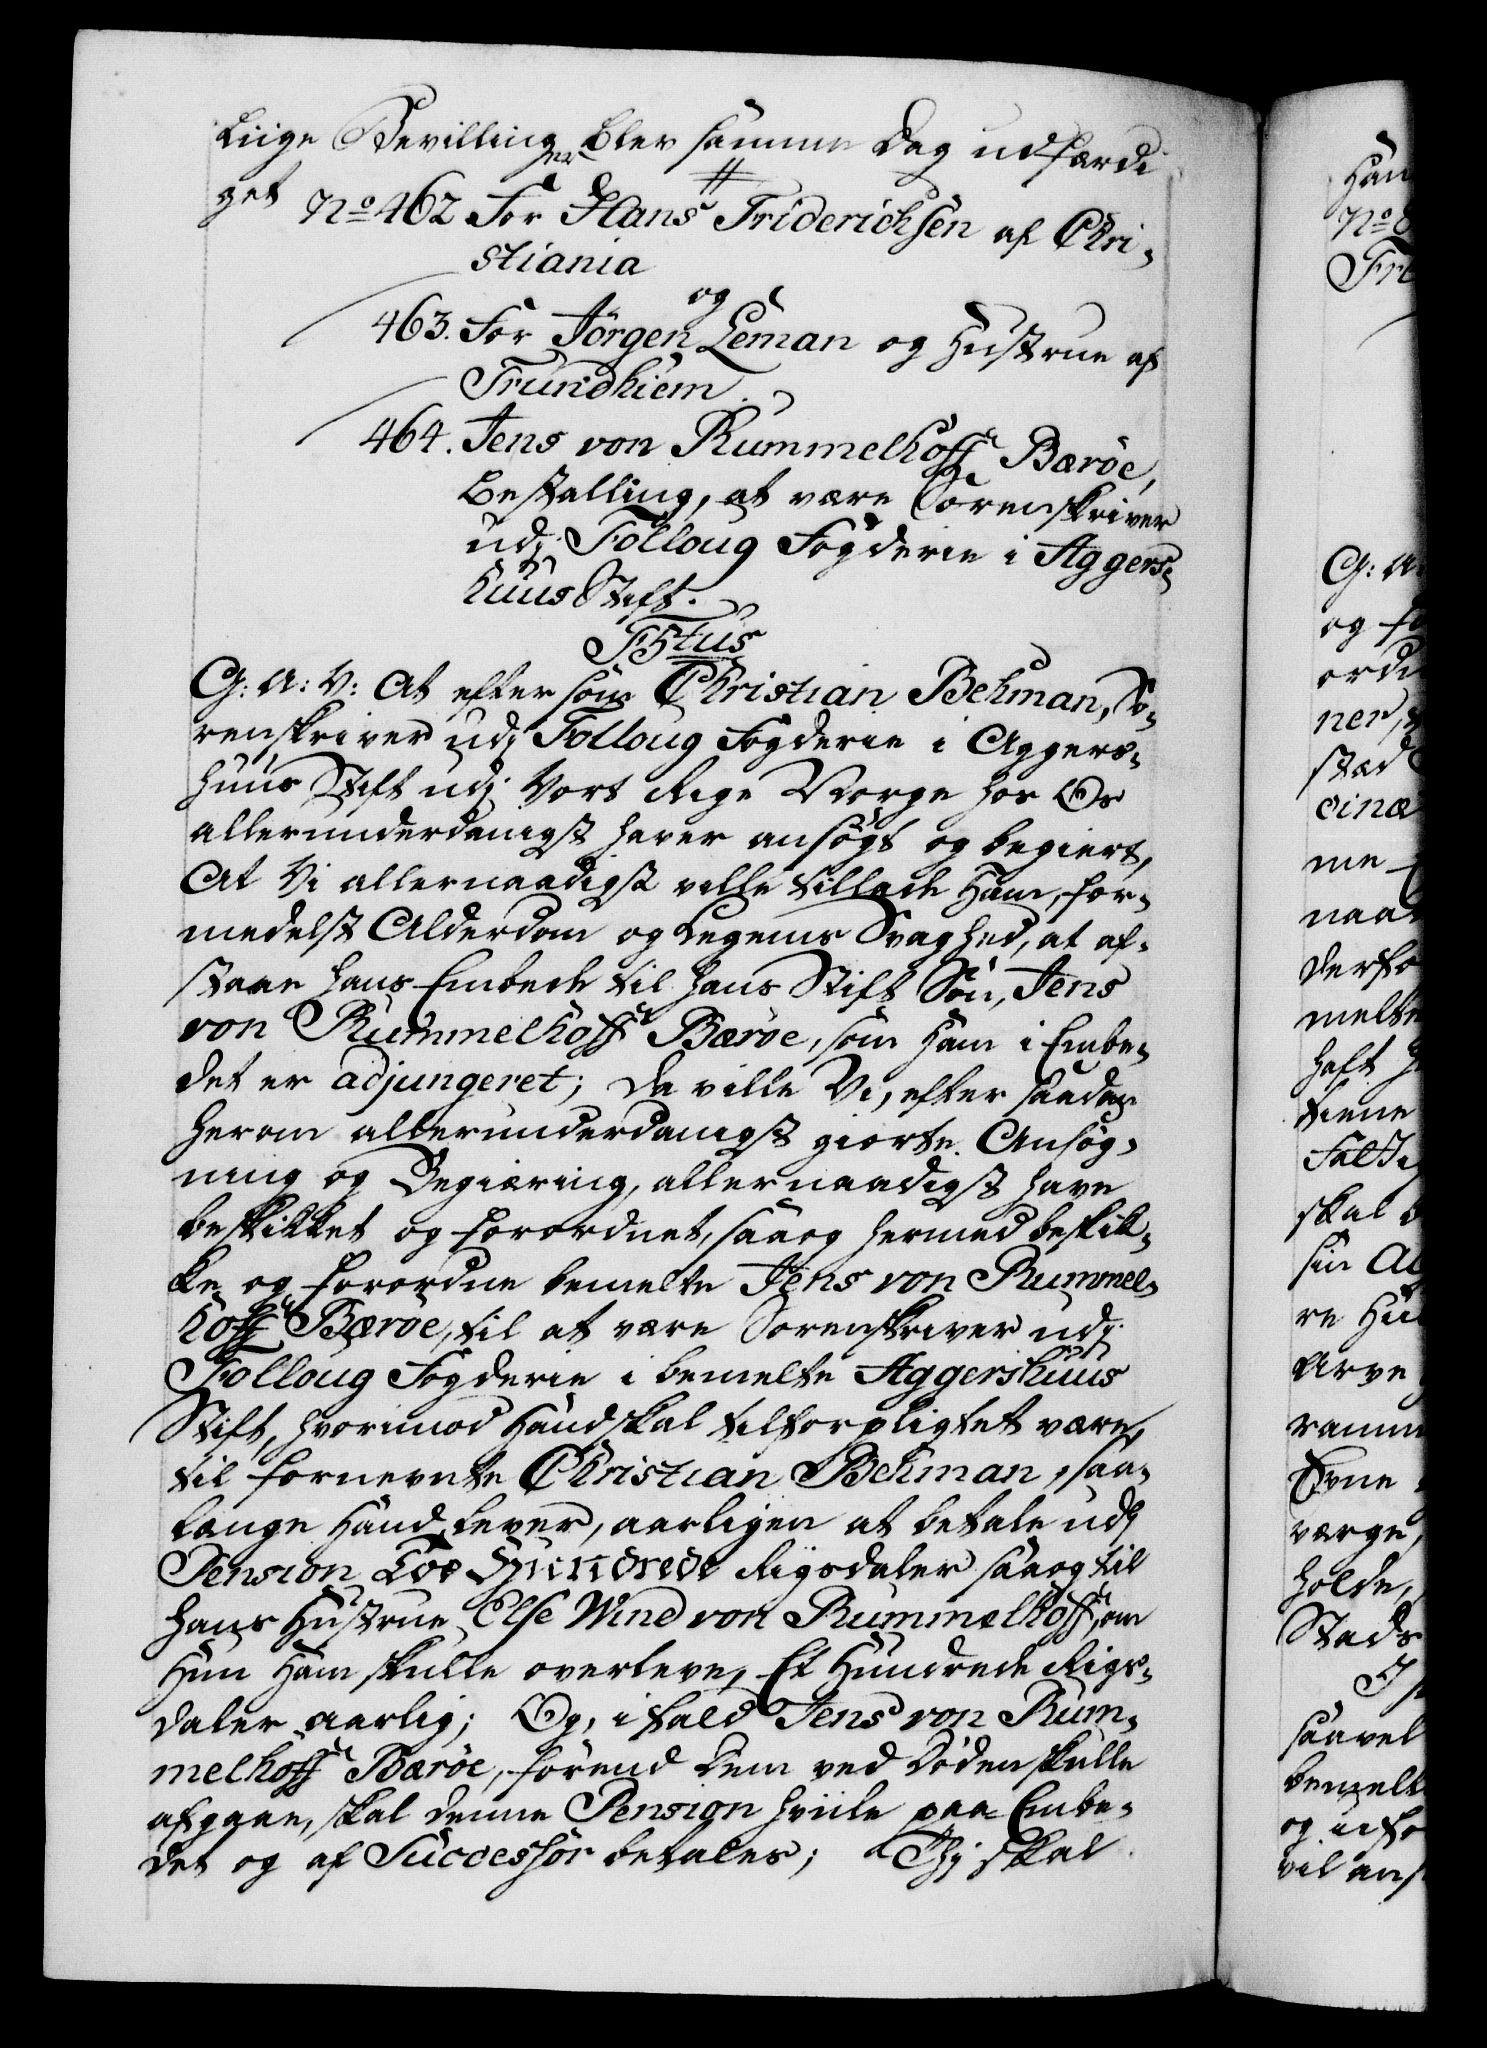 Liige Bevillinger blev samme Dag udfærdi
get
No 462 For Hans Friderichsen af Chri-
stiania
og
463. For Jørgen Leman og Hustrue af
Trundhiem.
464. Jens von Rummelhoff Barøe,
Bestalling, at være Sorenskriver
udj Folloug Fogderie i Aggers-
huus Stift.
F5tus
G: A: V: At eftersom Christian Behman, So-
renskriver udj Folloug Fogderie i Aggers-
huus Stift udj Vort Rige Norge hos Os
allerunderdanigst haver ansøgt og begiert,
At Vi allernaadigst ville tillade Ham, for-
medelst Alderdom og Legems Svaghed, at af-
staae hans Embede til hans Stift Søn, Jens
von Rummelhoff Barøe, som ham i Embe-
det er adjungeret; Da ville Vi, efter saadan
herom allerunderdanigst giorte Ansøg-
ning og Begiæring, allernaadigst have
beskikket og forordnet, saa og hermed beskik-
ke og forordne bemelte Jens von Rummel-
hoff Barøe, til at være Sorenskriver udj
Folloug Fogderie i bemelte Aggershuus
Stift, hvorimod Hand skal tilforpligtet være,
til fornevnte Christian Behman, saa-
længe Hand lever, aarligen at betale udj
Pension Toe Hundrede Rigsdaler saa og til
hans Hustrue Else Wind von Rummelhoff, om
Hun Ham skulle overleve, Et Hundrede Rigs-
daler aarlig; Og, ifald Jens von Rum-
melhoff Barøe, forend Dem ved Døden skulle
afgaae, skal denne Pension hviile paa Embe-
det og af Successor betales; Thj skal